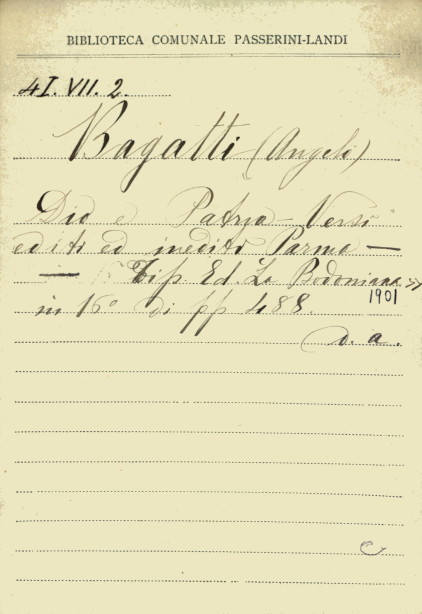 BIBLIOTECA COMUNALE PASSERINI-LANDI
4I. VII. 2.
Bagatti (Angelo)
Dio e Patria - Versi
editi ed inediti Parma —
— Tip Ed. La Bodoniana
1901
in 16° di pp 488.
D. a.